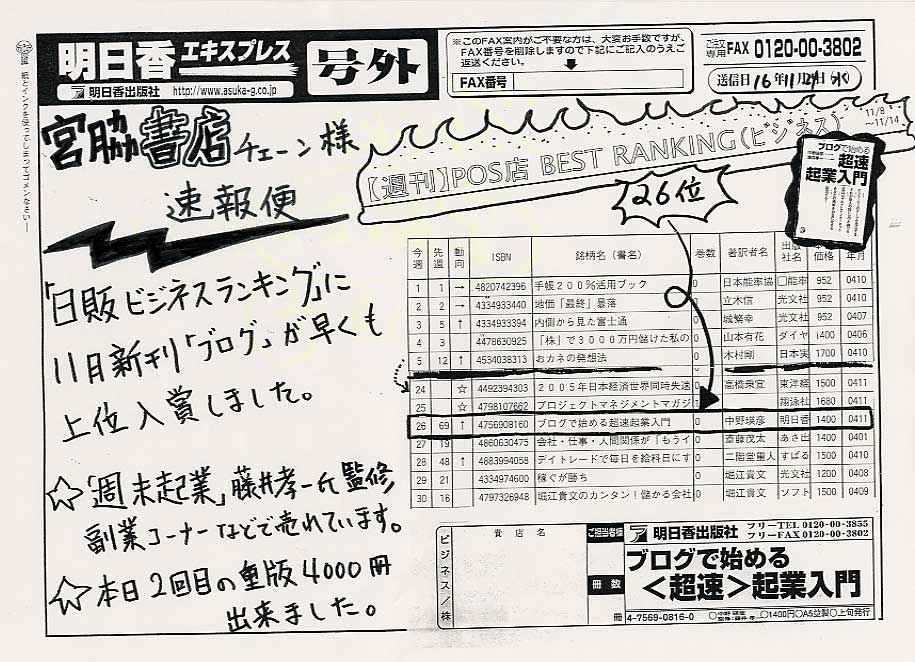 明日香エキスプレス
号外
ア 明日香出版社 http://www.asuka-g.co.jp
※このFAX案内がご不要な方は、大変お手数ですが、
FAX番号を削除しますので下記にご記入のうえご
返送ください。
FAX番号
ご注文専用FAX 0120-00-3802
送信日 16年11月24日(水)
紙とインクを使ってしまってゴメンなさい
宮脇書店チェーン様
速報便
【週刊】POS店 BEST RANKING(ビジネス)
11/8
～11/14
ブログで始める
超速
起業入門
26位
「日販ビジネスランキング」に
11月新刊「ブログ」が早くも
上位入賞しました。
☆「週末起業」藤井孝一氏監修
副業コーナーなどで売れています。
☆本日2回目の重版4000冊
出来ました。
今週 先週 動向 ISBN 銘柄名(書名) 巻数 著訳者名 出版社名 価格 年月
1 1 → 4820742396 手帳200%活用ブック 0 日本能率協 能率 952 0410
2 2 → 4334933440 地価「最終」暴落 0 立木信 光文社 952 0410
3 5 ↑ 4334933394 内側から見た富士通 0 城繁幸 光文社 952 0407
4 3 4478630925 「株」で3000万円儲けた私の 0 山本有花 ダイヤ 1400 0406
5 12 ↑ 4534038313 おカネの発想法 0 木村剛 日本実 1700 0410
24 ☆ 4492394303 2005年日本経済世界同時失速 0 高橋乗宣 東洋経 1500 0411
25 ☆ 4798107662 プロジェクトマネジメントマガジ 翔泳社 1680 0411
26 69 ↑ 4756908160 ブログで始める超速起業入門 0 中野瑛彦 明日香 1400 0411
27 19 4860630475 会社・仕事・人間関係が「もうイ 0 斎藤茂太 あさ出 1400 0401
28 48 ↑ 4883994058 デイトレードで毎日を給料日にす 0 二階堂重人 すばる 1500 0410
29 21 4334974600 稼ぐが勝ち 0 堀江貴文 光文社 1200 0408
30 16 4797326948 堀江貴文のカンタン!儲かる会社 0 堀江貴文 ソフト 1500 0409
ビジネス/株
貴店名
ご担当者様
冊数
冊
ア 明日香出版社 フリーTEL 0120-00-3855
フリーFAX 0120-00-3802
ブログで始める
＜超速＞起業入門
4-7569-0816-0 ○1400円○A5並製○上旬発行